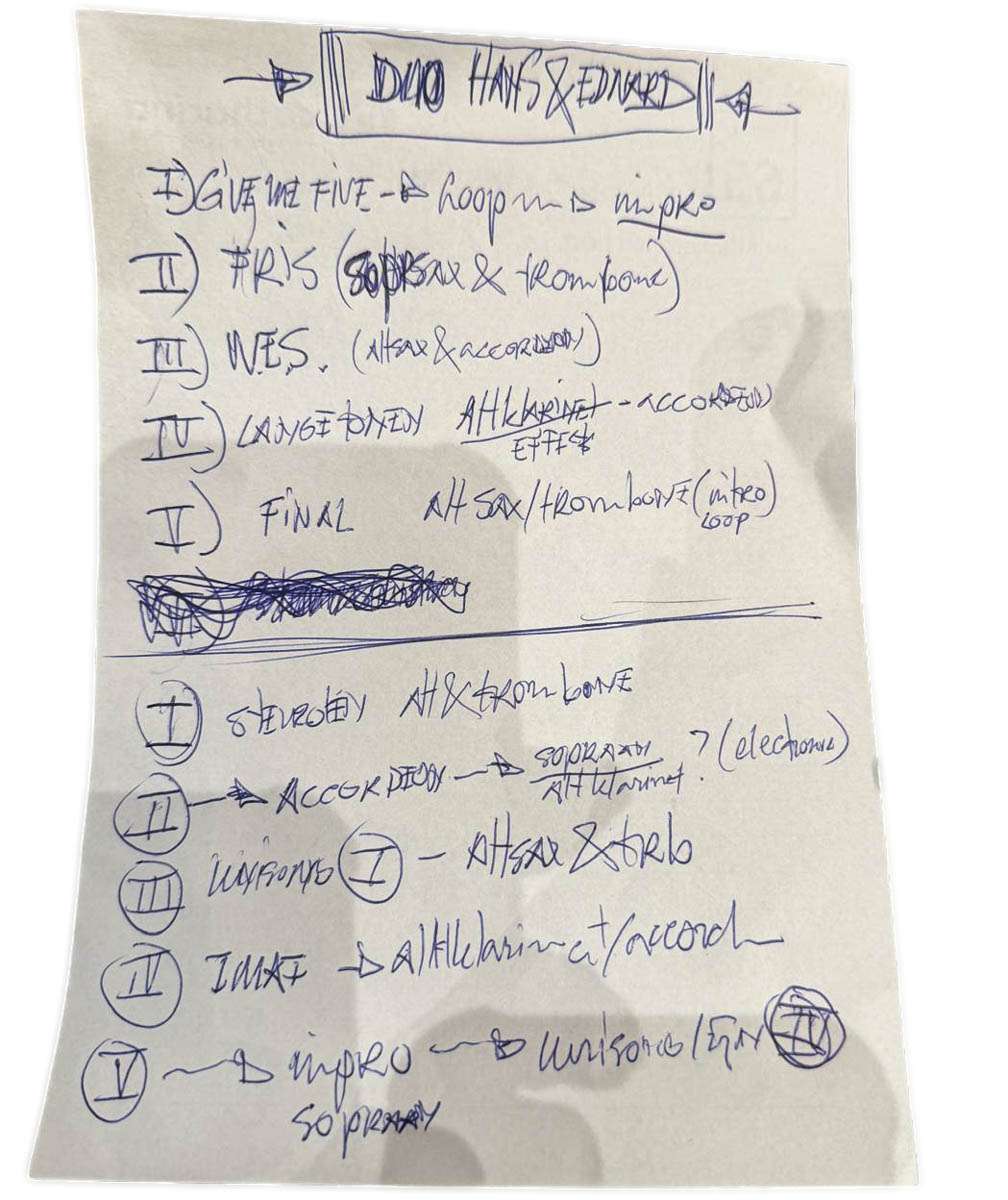 DUO HANS & EDUARD
I) GIVE ME FIVE → Loop → impro
II) IRIS (SOPRSAX & trombone)
III) W.E.S. (Altsax & accordeon)
IV) LANGE TONEN Altklarinet - accordeon
EFFEK
V) FINAL Alt SAX/trombone (impro)
LOOP
I Alt & trombone
II → Accordeon → sopraan ? (electronic)
Altklarinet
III unisono I - Altsax & trb
IV → altklarinet/accord
V → impro → unisono / IV
sopraan